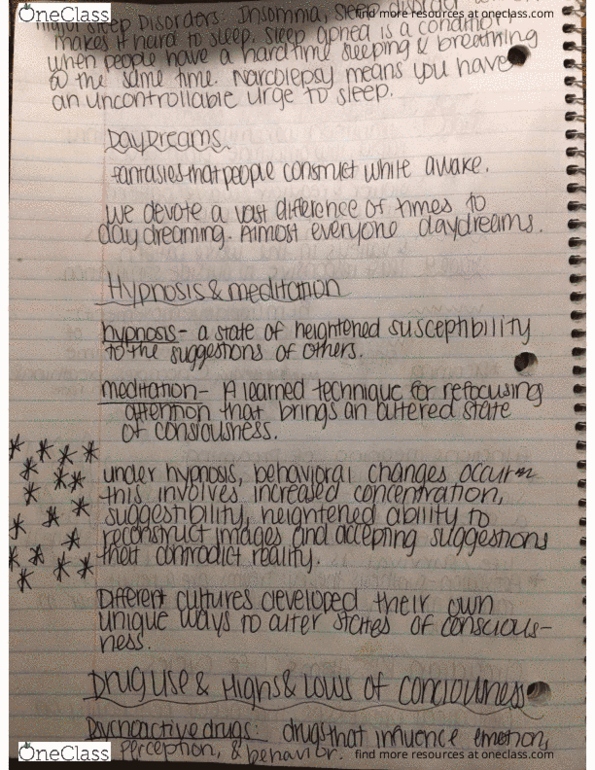 OneClass
find more resources at oneclass.com
major Sleep Disorders: Insomnia, Sleep disorder
makes it hard to sleep. Sleep apnea is a condit
when people have a hard time sleeping & breathing
@ the same time. Narcolepsy means you have
an uncontrollable urge to sleep.
DayDreams
fantasies that people construct while awake.
we devote a vast difference of times to
day dreaming. Almost everyone daydreams.
Hypnosis & meditation
hypnosis- a state of heightened susceptibility
to the suggestions of others.
meditation- A learned technique for refocusing
attention that brings an altered state
of consiousness.
under hypnosis, behavioral changes occur
this involves increased concentration,
suggestibility, heightened ability to
reconstruct images and accepting suggestions
that contradict reality.
Different cultures developed their own
unique ways to alter states of conscious-
ness.
Drug use & Highs & Lows of Conciousness
Psychoactive drugs: drugs that influence emotion,
perception, & behavior.
OneClass
find more resources at oneclass.com